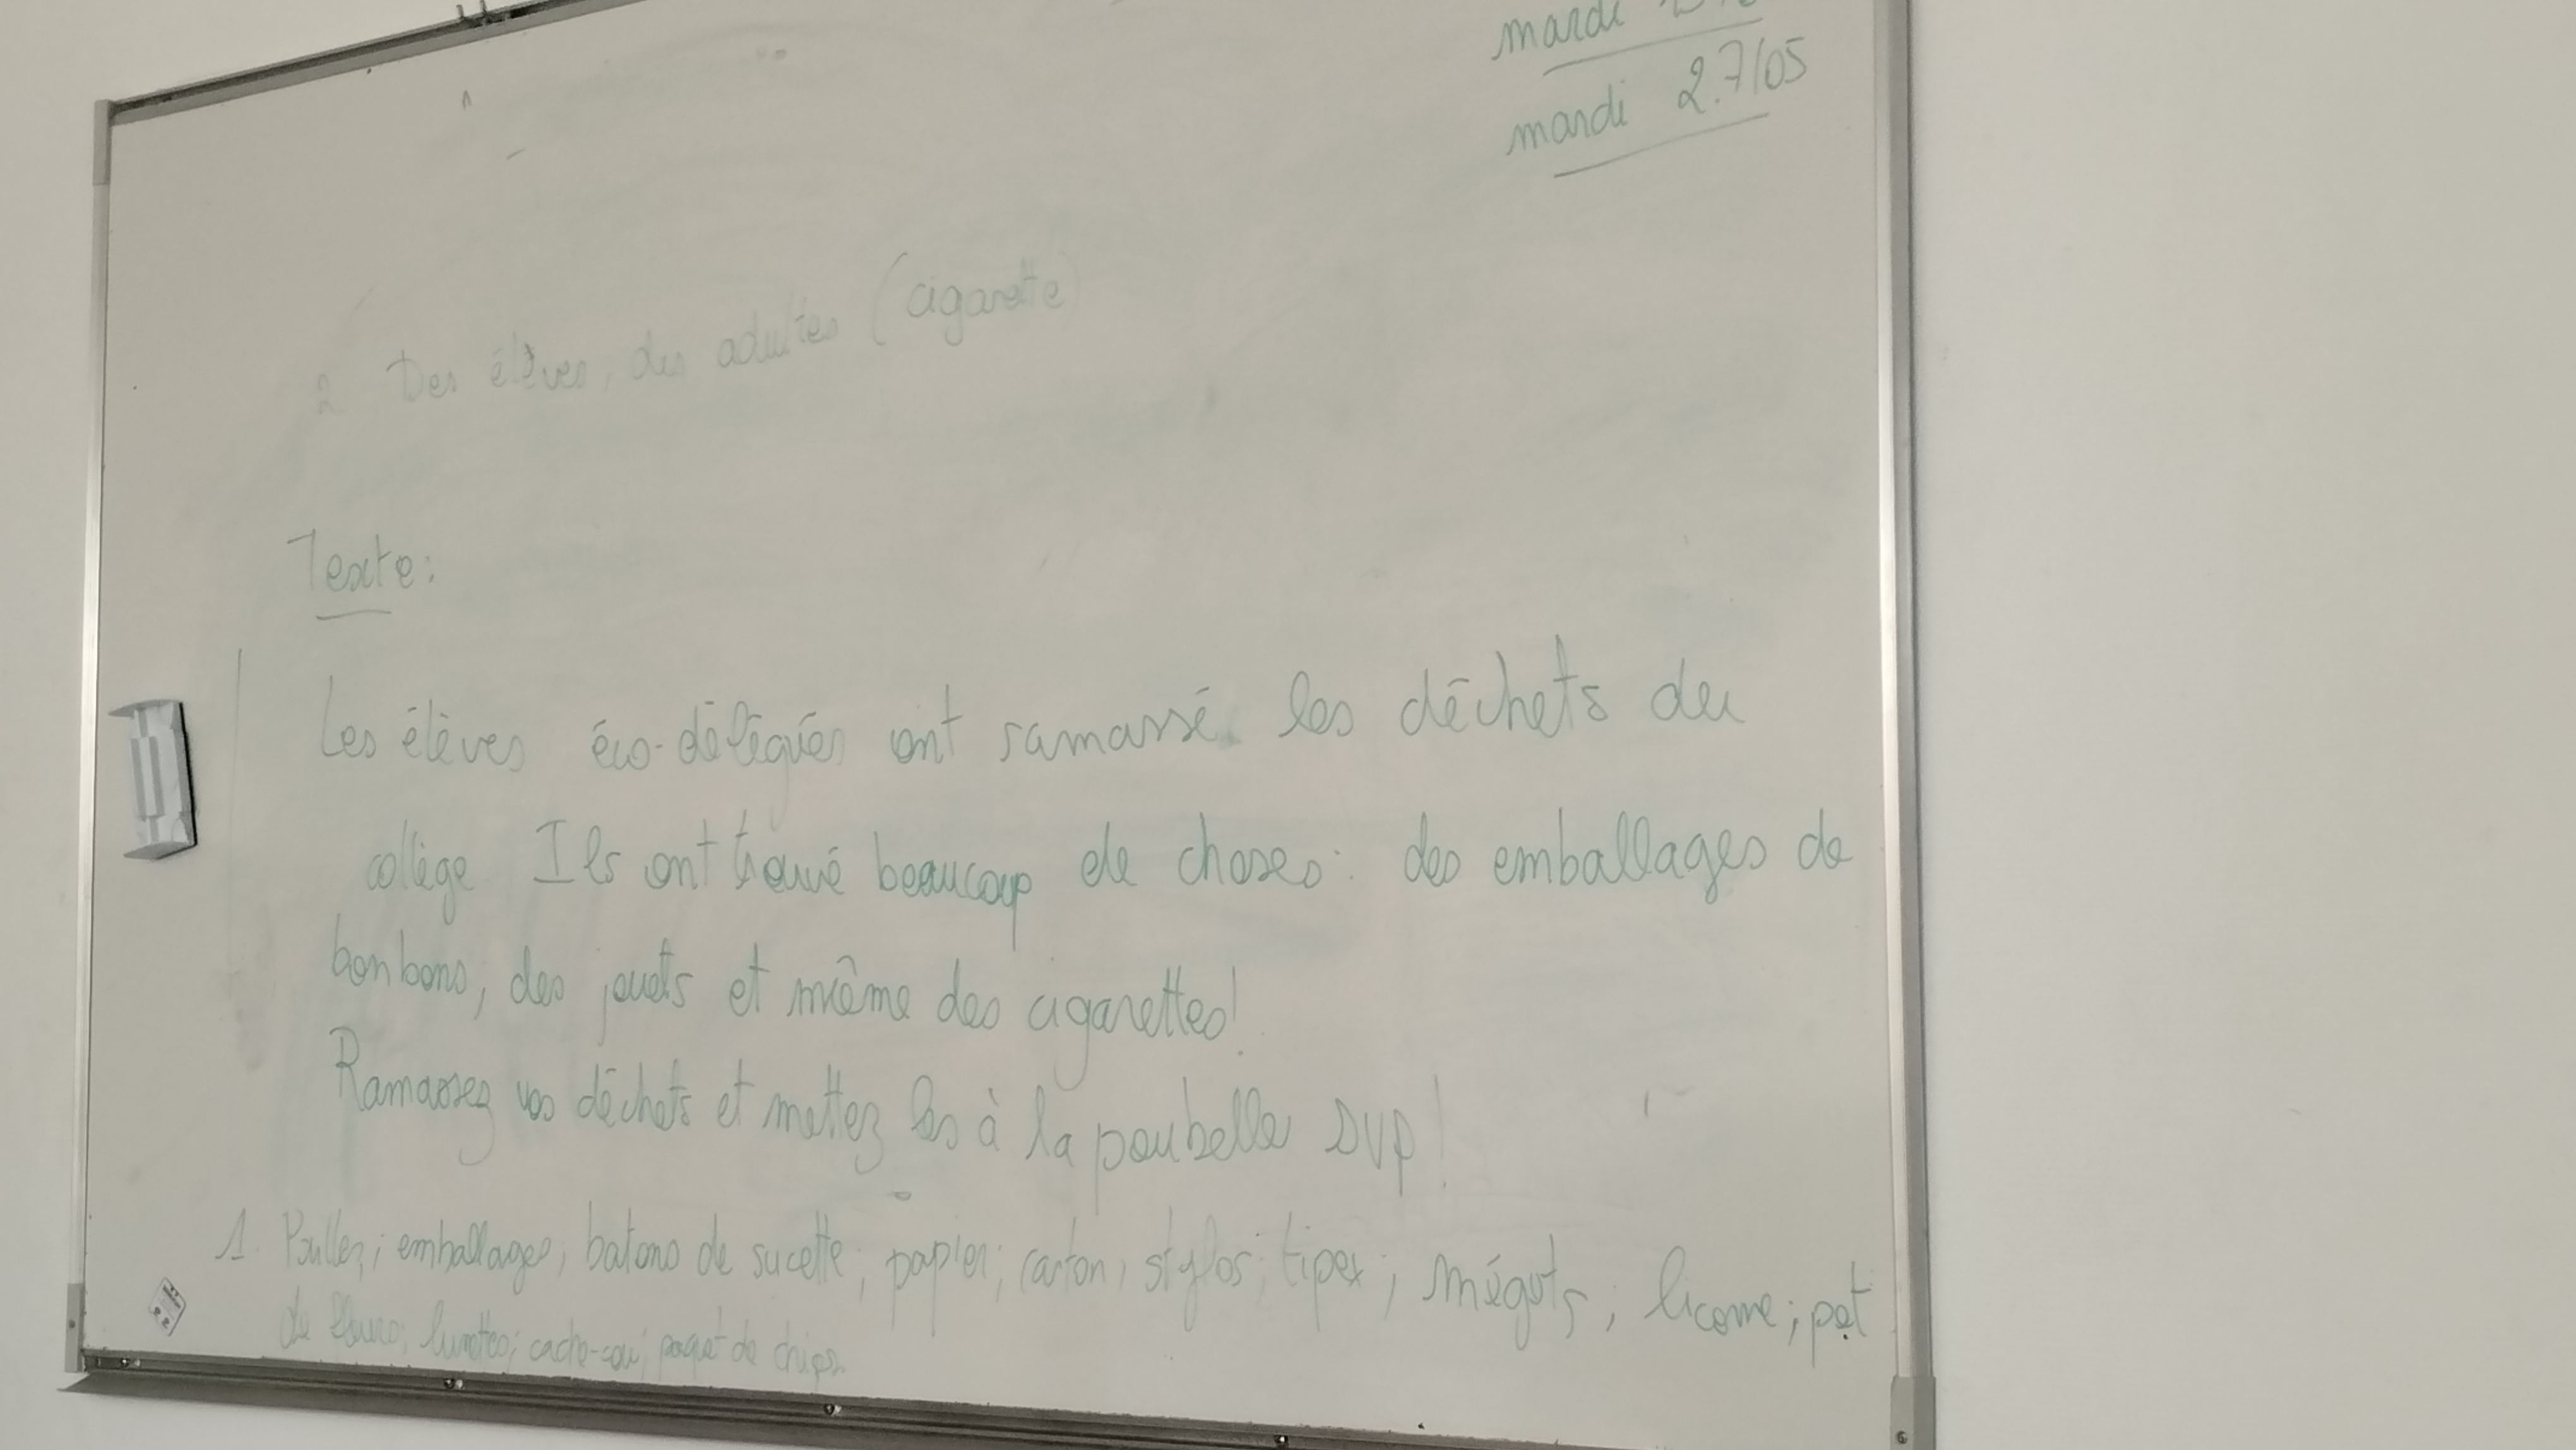 mardi
mardi 27/05
2 Des élèves, des adultes (cigarette)
Texte:
Les élèves éco-délégués ont ramassé les déchets du
collège Ils ont trouvé beaucoup de choses: des emballages de
bonbons, des jouets et même des cigarettes!
Ramassez vos déchets et mettez les à la poubelle SVP!
1. Pailles; emballages; batons de sucette; papier; carton; stylos; tipex; mégots; licorne; pot
de fleurs; lunettes; cache-cou; paquet de chips